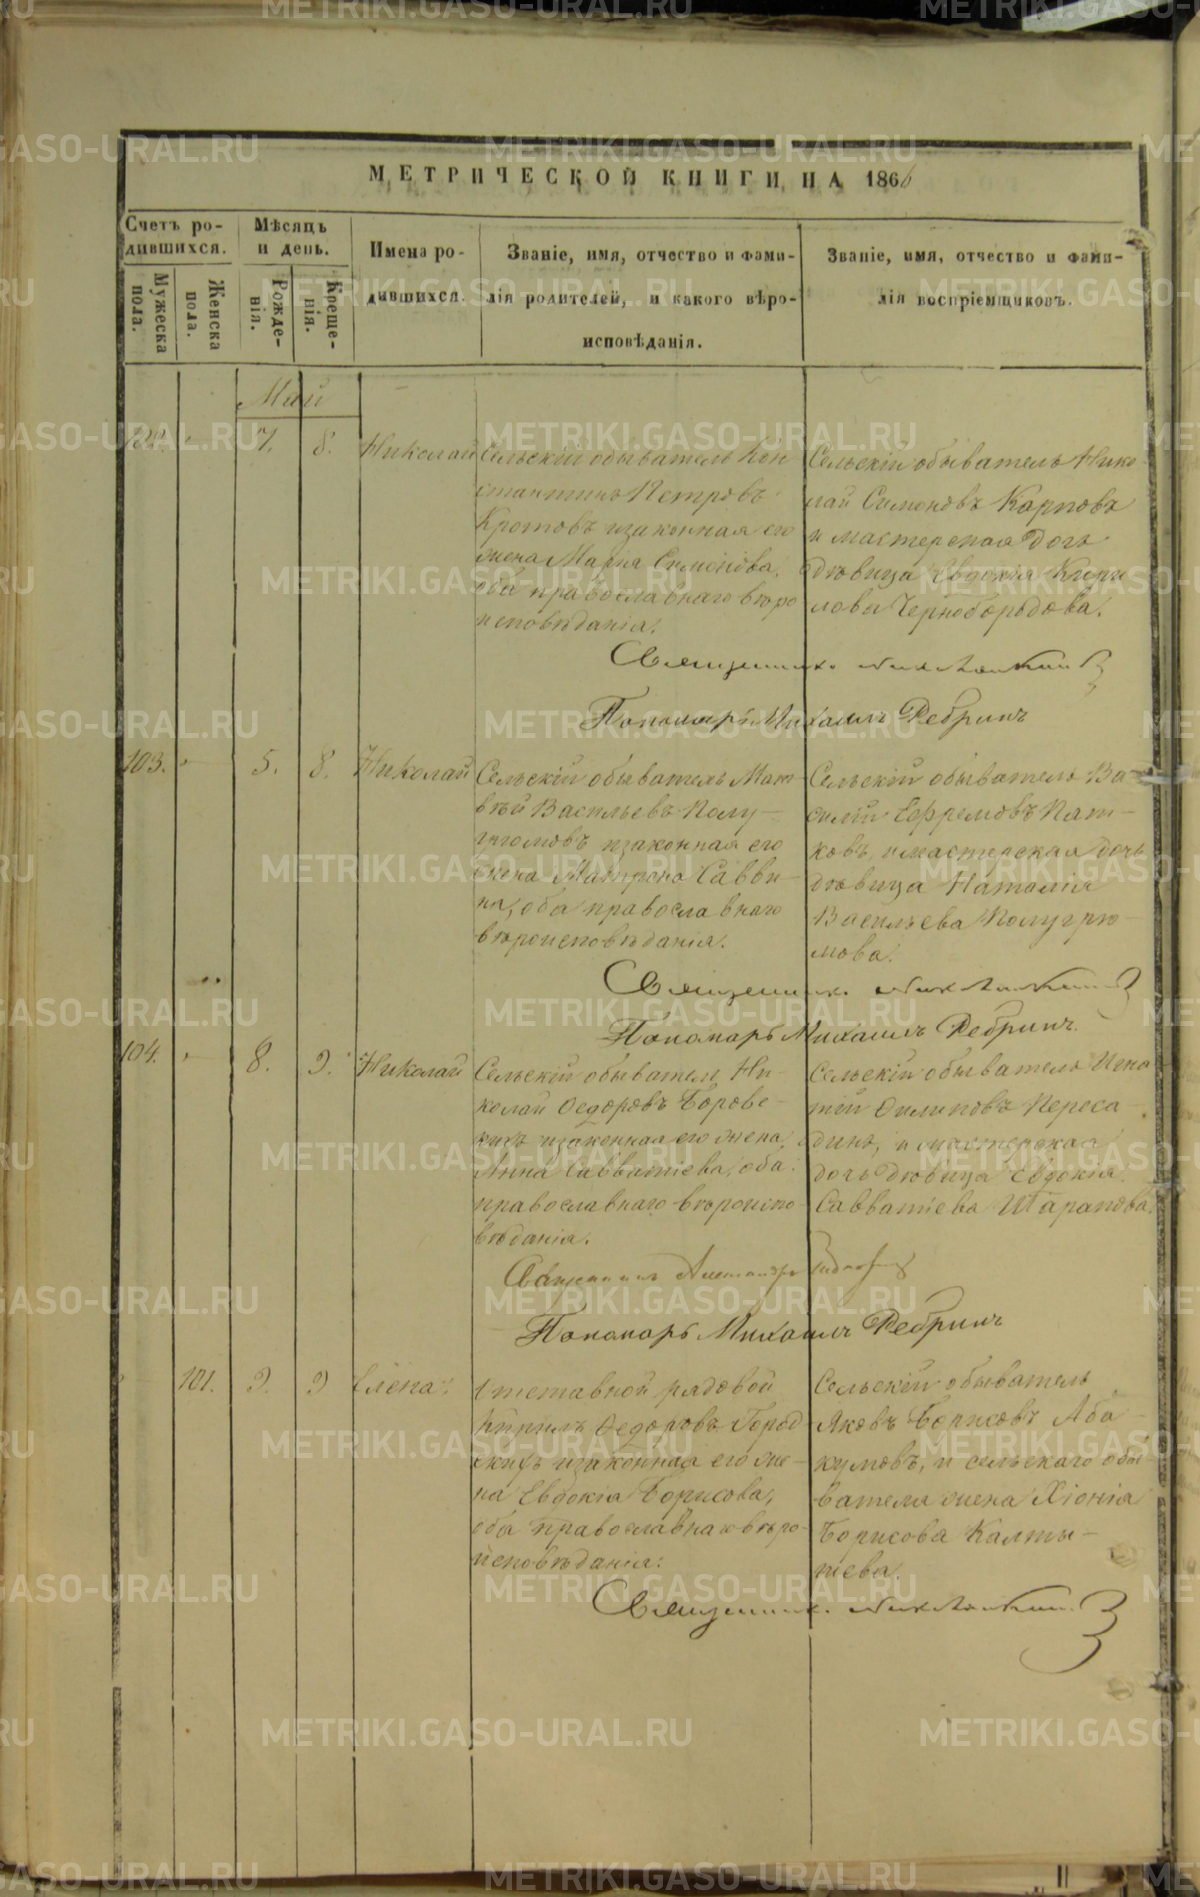 МЕТРИЧЕСКОЙ КНИГИ НА 1866
Счетъ ро-
дившихся.
Мужеска
пола.
Женска
пола.
Мѣсяцъ
и день.
Рожде-
нія.
Креще-
нія.
Имена ро-
дившихся.
Званіе, имя, отчество и фами-
лія родителей, и какого вѣро-
исповѣданія.
Званіе, имя, отчество и фами-
лія воспріемщиковъ.
Май
102. 7. 8. Николай
Сельскій обыватель Кон
стантинъ Петровъ
Кротовъ и законная его
жена Марія Симонова,
оба православнаго вѣро
исповѣданія.
Сельскій обыватель Нико
лай Симоновъ Карповъ
и мастерская дочь
дѣвица Евдокія Кири
лова Чернобородова.
Священникъ
Пономарь Михаилъ Ребринъ
103. 5. 8. Николай
Сельскій обыватель Мат
вѣй Васильевъ Полу-
и законная его
жена Матрена Савви
на, оба православнаго
вѣроисповѣданія.
Сельскій обыватель Ва-
силій Ефремовъ Пят-
ковъ, и мастерская дочь
дѣвица Наталія
Васильева Полугрю-
мова.
Священникъ
Пономарь Михаилъ Ребринъ.
104. 8. 9. Николай
Сельскій обыватель Ни-
колай Ѳедоровъ Борове-
и законная его жена
Анна Савватіева, оба
православнаго вѣроиспо-
вѣданія.
Сельскій обыватель Игна
тій Филиповъ Переса-
динъ, и мастерская
дочь дѣвица Евдокія
Савватіева Шарапова.
Священникъ Александръ
Пономарь Михаилъ Ребринъ
101. 9. 9 Елена.
Отставной рядовой
Кирилъ Ѳедоровъ Город
и законная его же-
на Евдокія Борисова,
оба православнаго вѣро-
исповѣданія.
Сельскій обыватель
Яковъ Борисовъ Аба-
кумовъ, и сельскаго обы-
вателя жена Хіонія
Борисова Калты-
Священникъ
METRIKI.GASO-URAL.RU